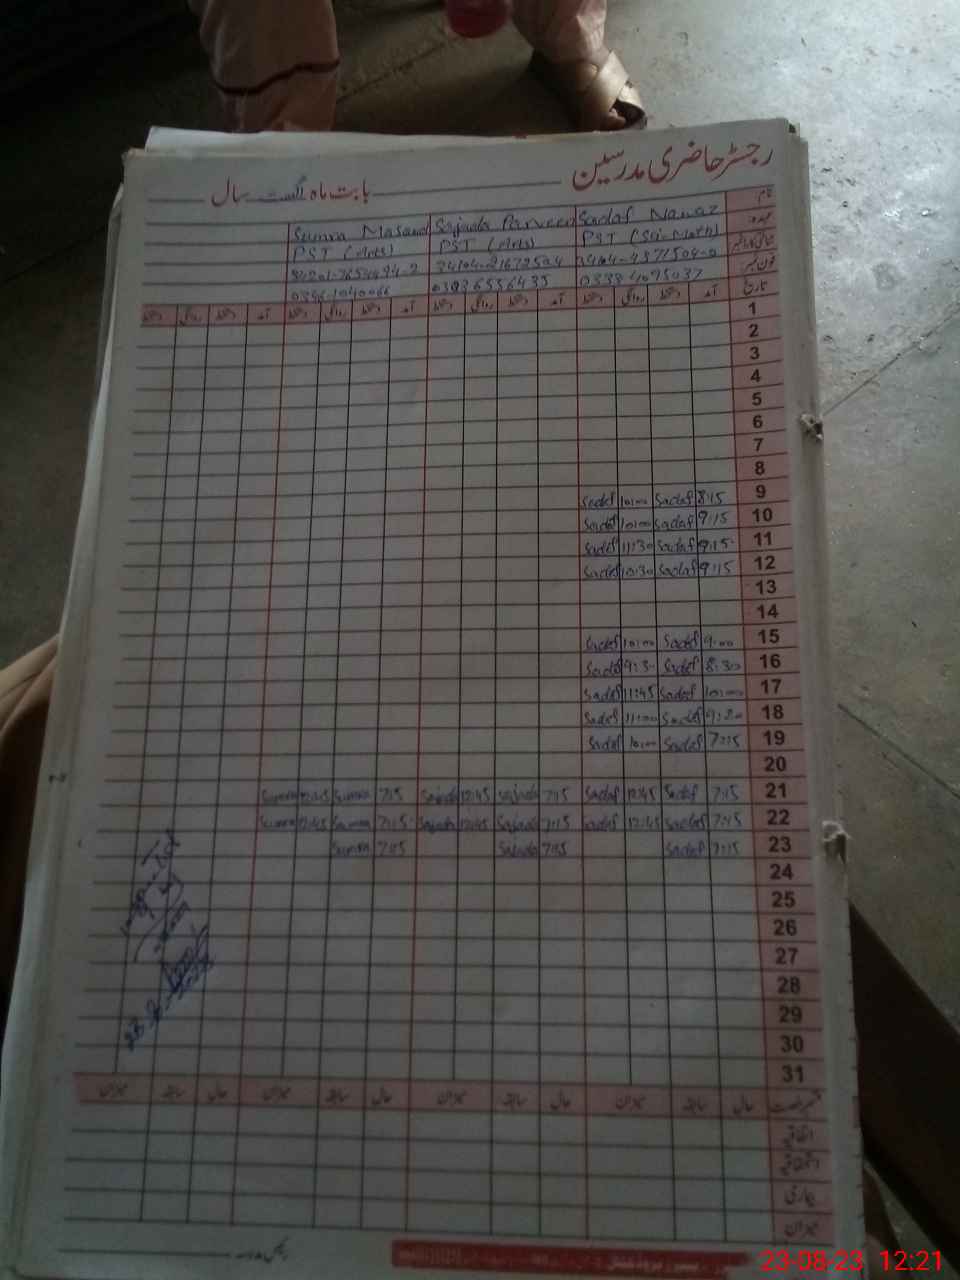 رجسٹر حاضری مدرسین
بابت ماہ اگست سال
نام Sadaf Nawaz Sajada Parveen Sumra Masand
عہدہ PST (Sci-Math) PST (Arts) PST (Arts)
شناختی کارڈ نمبر
فون نمبر 03336556435
تاریخ آمد دستخط روانگی دستخط آمد دستخط روانگی دستخط آمد دستخط روانگی دستخط آمد دستخط روانگی دستخط
1
2
3
4
5
6
7
8
9 8:15 Sadaf 10:00 Sadaf
10 9:15 Sadaf 10:00 Sadaf
11 9:15 Sadaf 11:30 Sadaf
12 9:15 Sadaf 10:30 Sadaf
13
14
15 9:00 Sadaf 10:00 Sadaf
16 8:30 Sadaf 9:30 Sadaf
17 10:00 Sadaf 11:45 Sadaf
18 9:20 Sadaf 11:00 Sadaf
19 7:15 Sadaf 10:00 Sadaf
20
21 7:15 Sadaf 12:45 Sadaf 7:15 Sajada 12:45 Sajada 7:15 Sumra 12:45 Sumra
22 7:15 Sadaf 12:45 Sadaf 7:15 Sajada 12:45 Sajada 7:15 Sumra 12:45 Sumra
23 7:15 Sadaf 7:15 Sajada 7:15 Sumra
24
25
26
27
28
29
30
31
قسم رخصت حال سابقہ میزان حال سابقہ میزان حال سابقہ میزان حال سابقہ میزان
اتفاقیہ
استحقاقیہ
بیماری
میزان
23-08-23 12:21